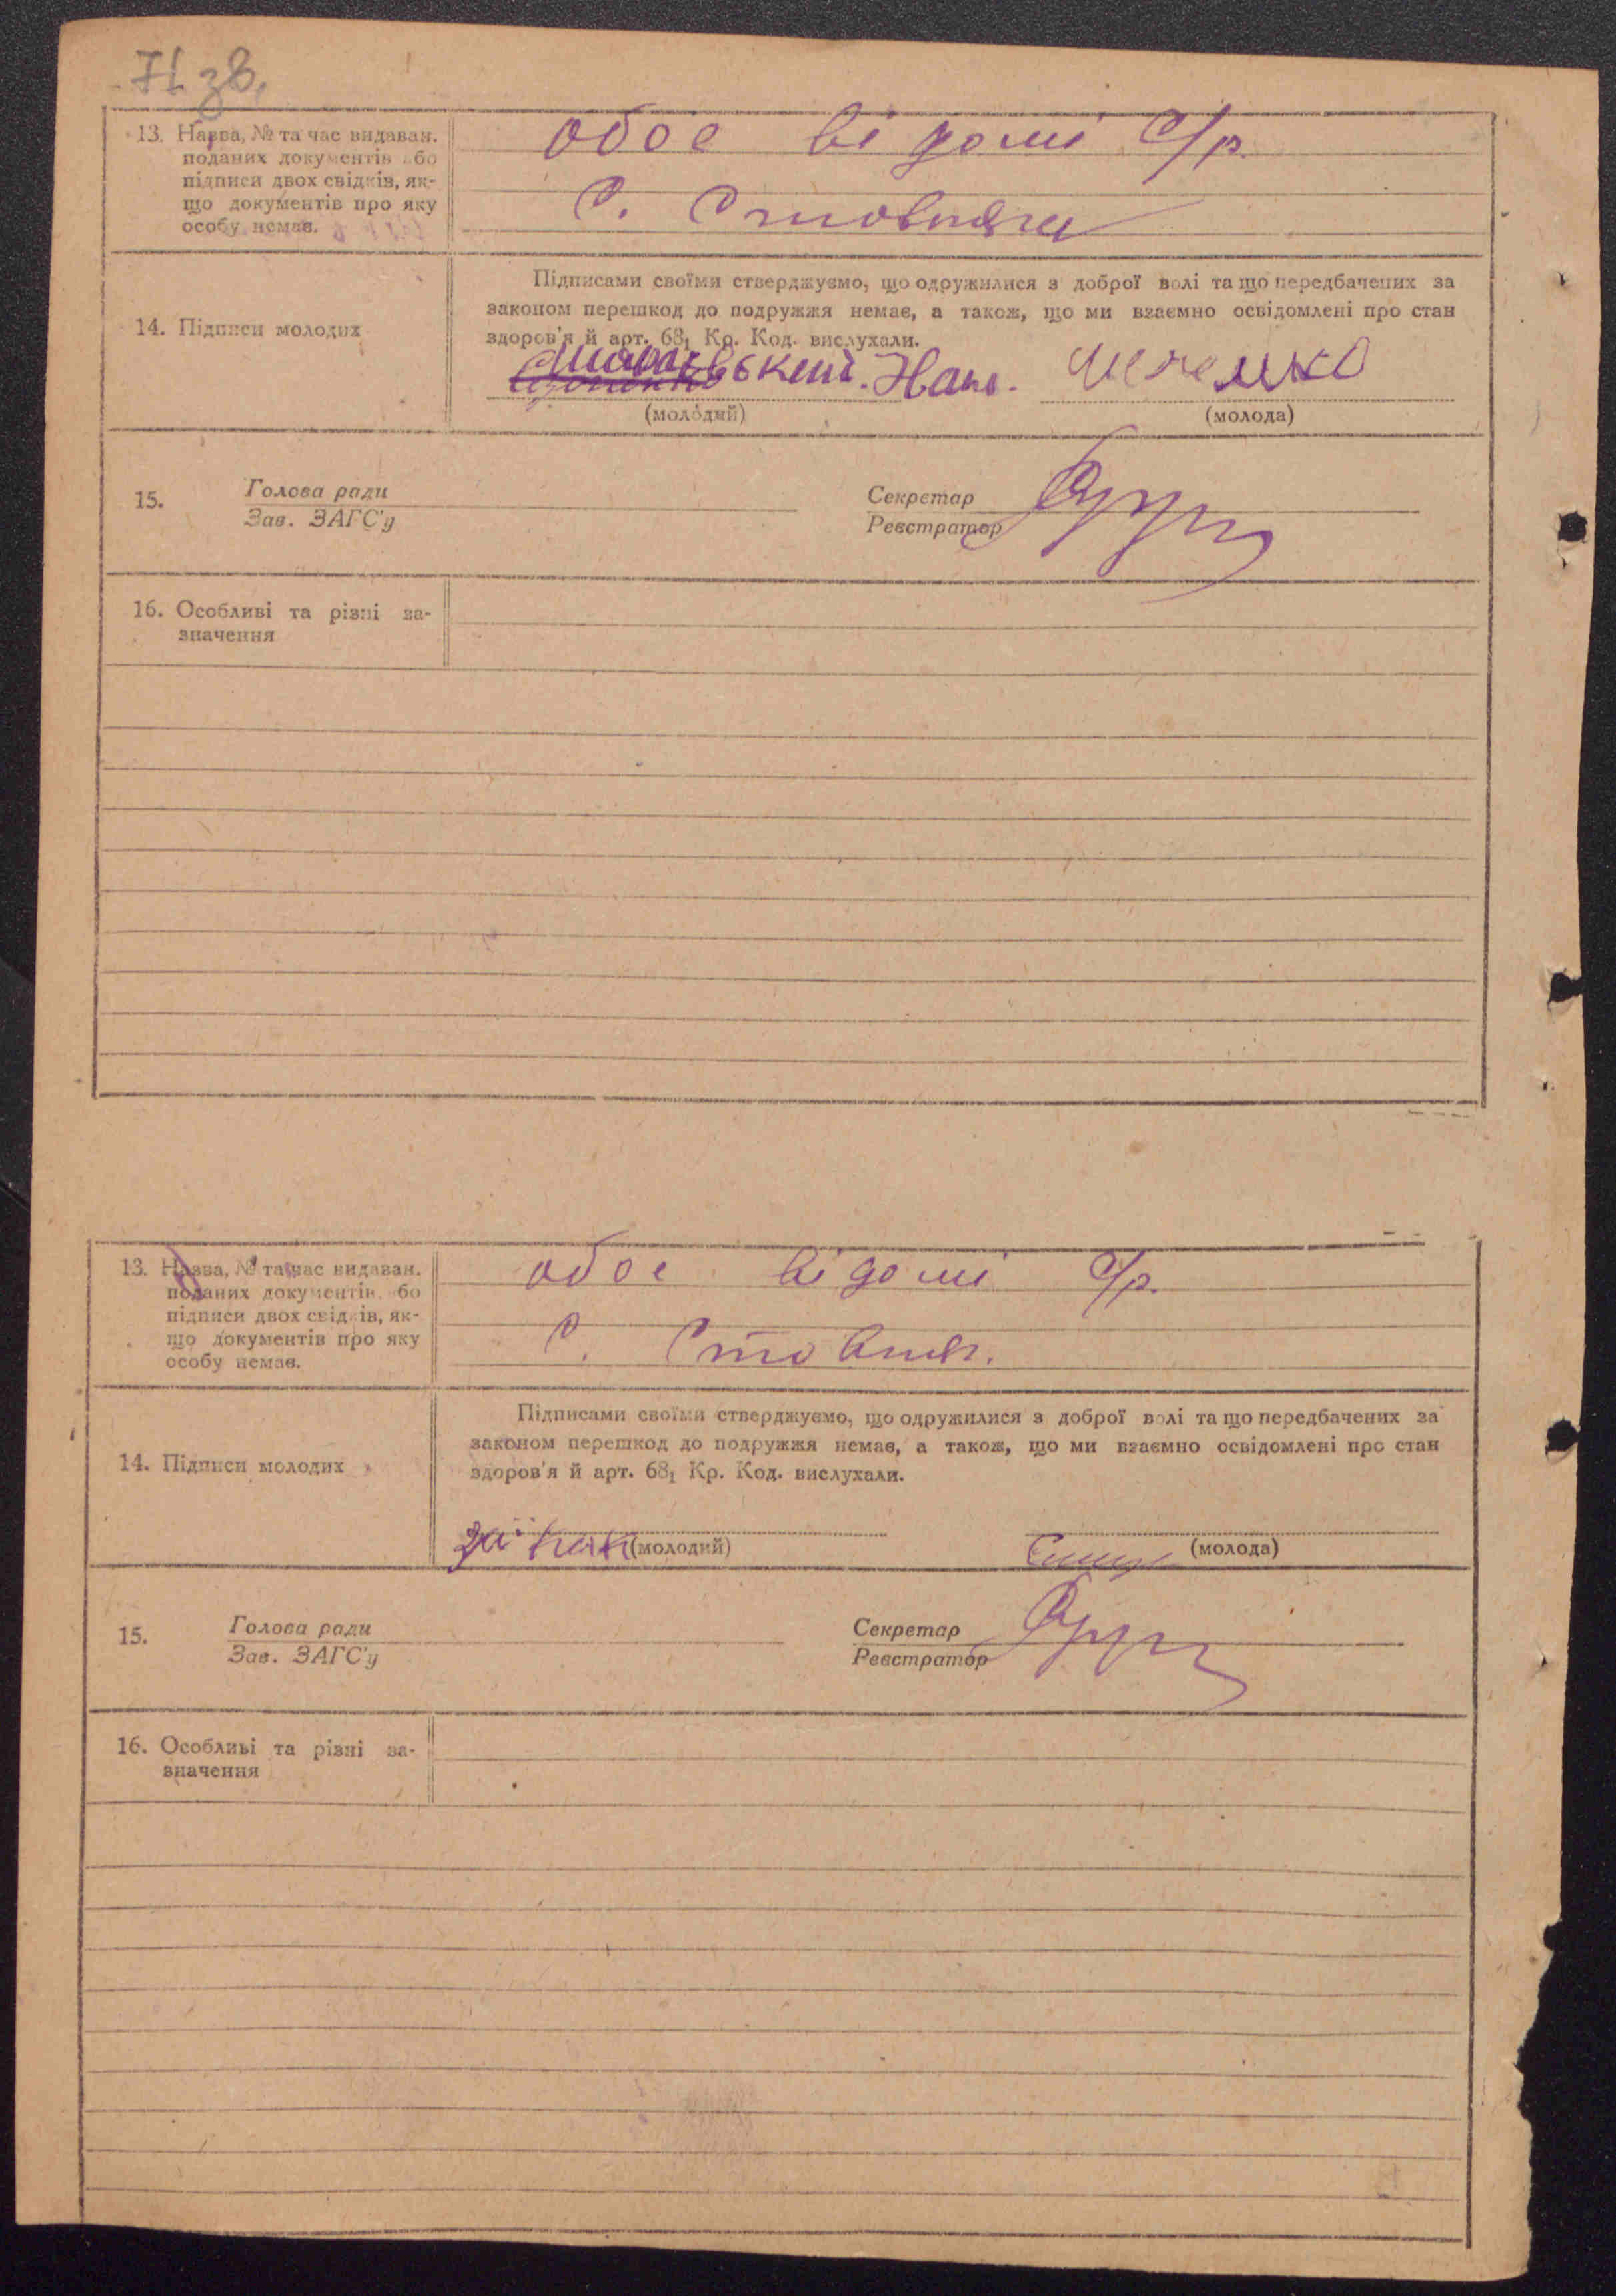 71 зв.
13. Назва, № та час видаван.
поданих документів або
підписи двох свідків, як-
що документів про яку
особу немає.
обоє відомі с/р.
с. Стовпяги
14. Підписи молодих
Підписами своїми стверджуємо, що одружилися з доброї волі та що передбачених за
законом перешкод до подружжя немає, а також, що ми взаємно освідомлені про стан
здоров'я й арт. 68₁ Кр. Код. вислухали.
(молодий)
(молода)
15.
Голова ради
Зав. ЗАГС'у
Секретар
Реєстратор
16. Особливі та різні за-
значення
13. Назва, № та час видаван.
поданих документів або
підписи двох свідків, як-
що документів про яку
особу немає.
обоє відомі с/р.
с. Стовпяг.
14. Підписи молодих
Підписами своїми стверджуємо, що одружилися з доброї волі та що передбачених за
законом перешкод до подружжя немає, а також, що ми взаємно освідомлені про стан
здоров'я й арт. 68₁ Кр. Код. вислухали.
(молодий)
(молода)
15.
Голова ради
Зав. ЗАГС'у
Секретар
Реєстратор
16. Особливі та різні за-
значення